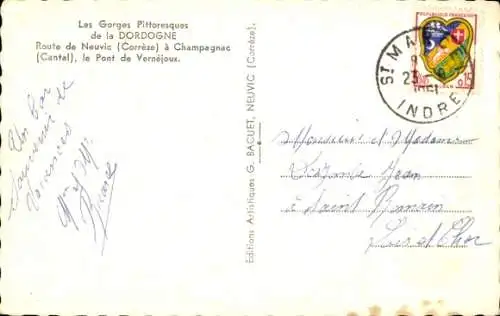 Les Gorges Pittoresques
de la DORDOGNE
Route de Neuvic (Corrèze) à Champagnac
(Cantal), le Pont de Vernéjoux.
Un bon
souvenir de
vacances
Editions Artistiques G. BACUET, NEUVIC (Corrèze).
REPUBLIQUE FRANÇAISE
0,15
ST MA
23
1961
INDRE
Monsieur et Madame
Jean
à Saint Romain
Loir et Cher